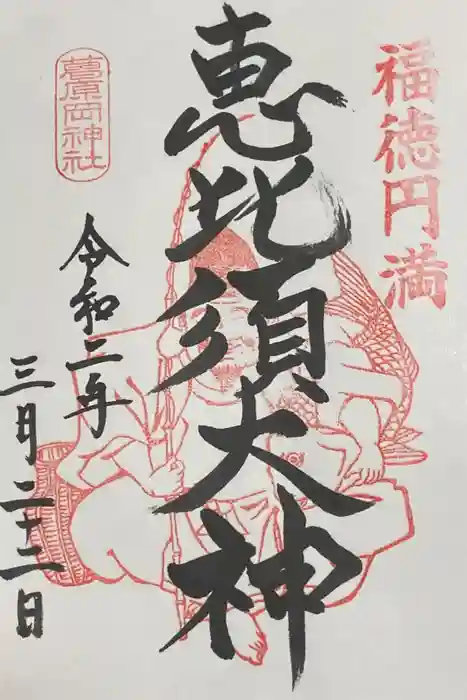 福徳円満
恵比須大神
葛原岡神社
令和二年
三月二十二日